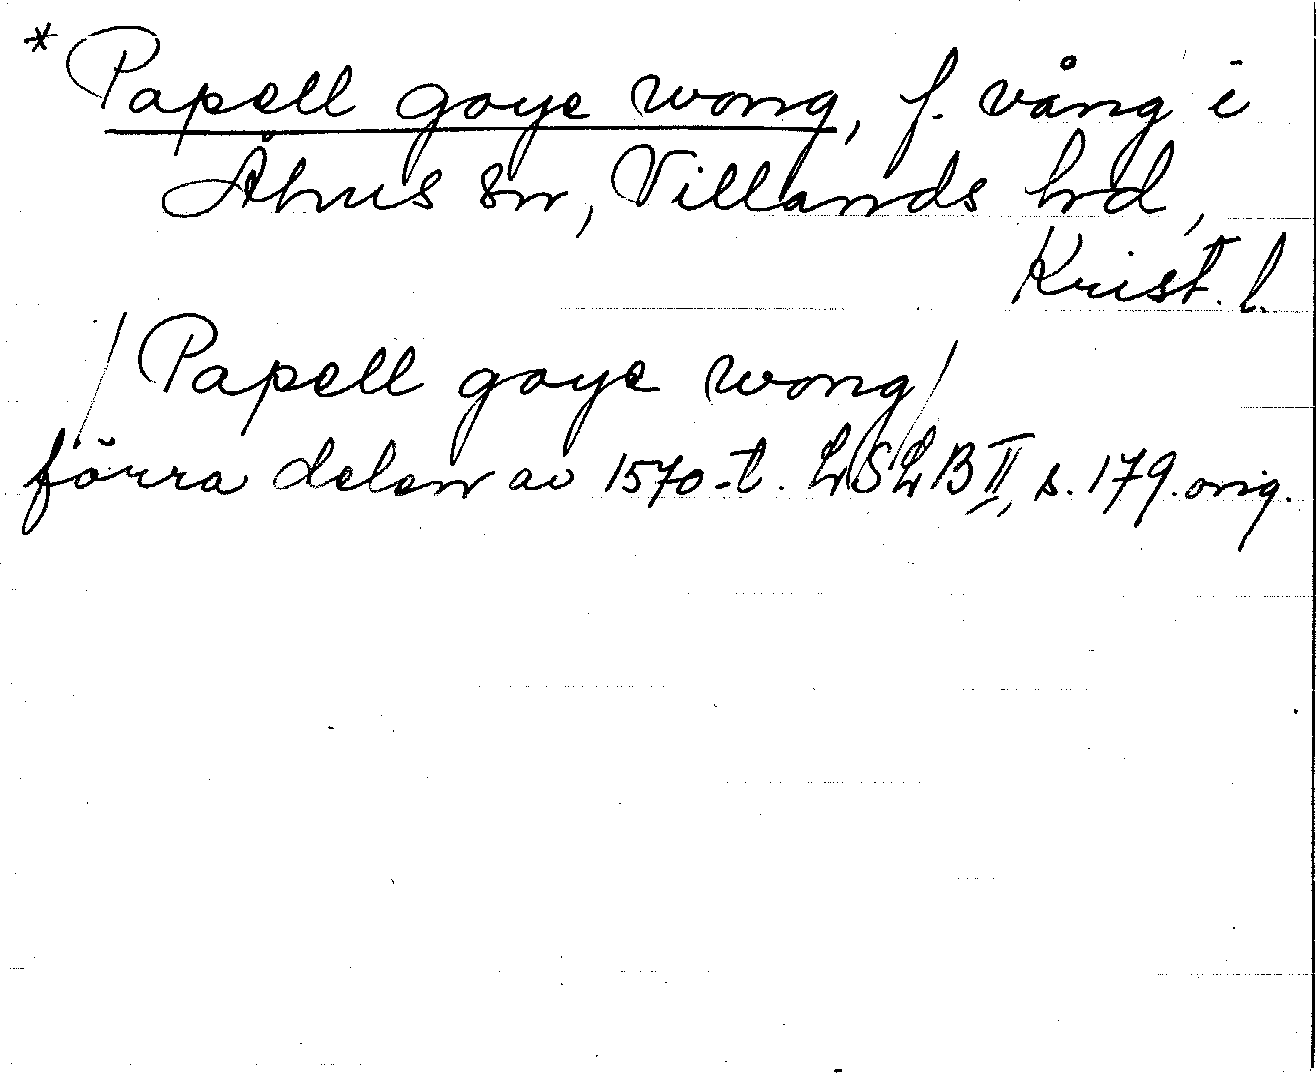 * Papell goye wong, f. vång i
Åhus sn, Villands hd,
Krist. l.
/Papell goye wong/
förra delen av 1570-t. LSLB II, s. 179. orig.